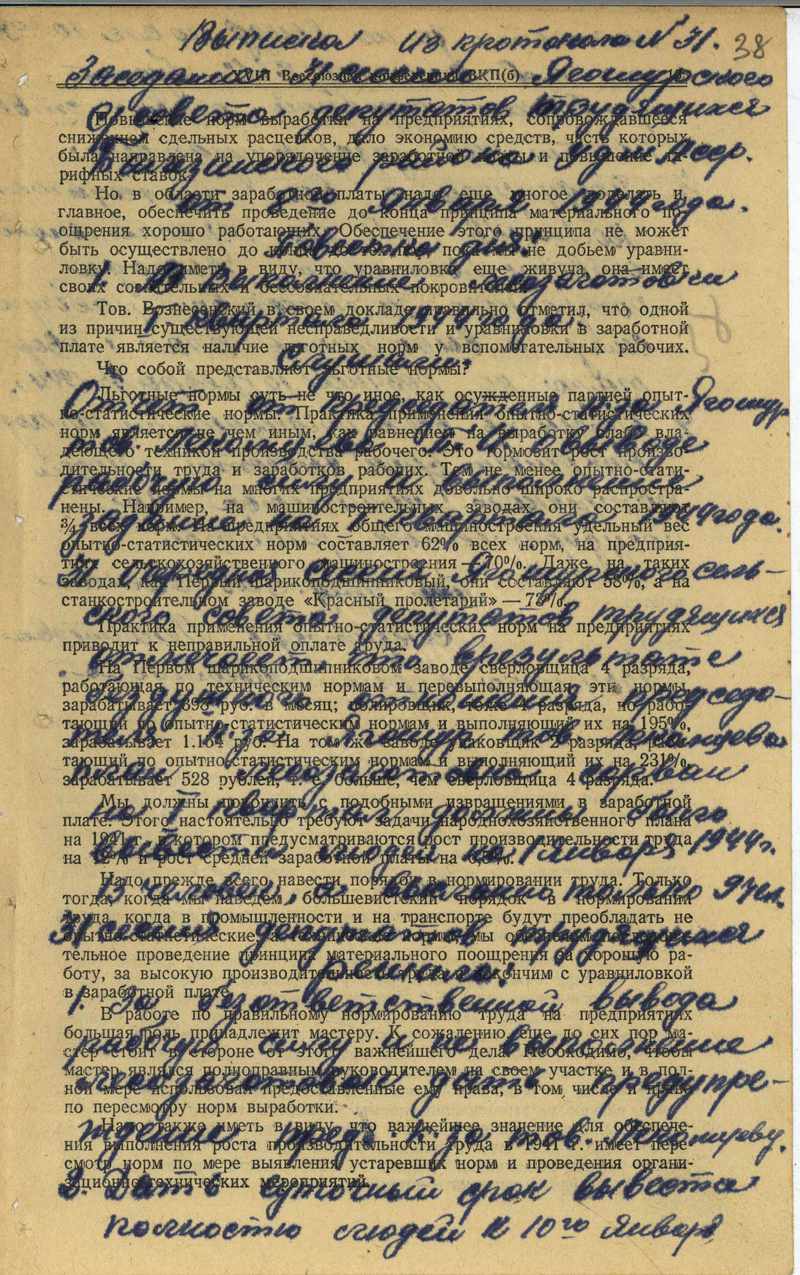 Выписка из протокола № 31.
38
Заседания 31 сессии Ягошурского
XVIII Всесоюзная конференция ВКП(б)
сельсовета депутатов трудящихся
Повышение норм выработки на предприятиях, сопровождавшееся
снижением сдельных расценок, дало экономию средств, часть которых
была направлена на упорядочение заработной платы и повышение та-
рифных ставок.
района Удм. АССР.
Но в области заработной платы надо еще многое доделать и,
главное, обеспечить проведение до конца принципа материального по-
ощрения хорошо работающих. Обеспечение этого принципа не может
быть осуществлено до конца, пока мы не добьем уравни-
ловку. Надо иметь в виду, что уравниловка еще живуча, она имеет
своих сознательных и бессознательных покровителей.
января 1944 года.
Повестка дня:
1. О выполнении лесозаготовки
I квартала 1944 года
Тов. Вознесенский в своем докладе правильно отметил, что одной
из причин существующей несправедливости и уравниловки в заработной
плате является наличие льготных норм у вспомогательных рабочих.
Что собой представляют льготные нормы?
Слушали:
Льготные нормы суть не что иное, как осужденные партией опыт-
но-статистические нормы. Практика применения опытно-статистических
норм является не чем иным, как равнением на выработку слабо вла-
деющего техникой производства рабочего. Это тормозит рост произво-
дительности труда и заработков рабочих. Тем не менее опытно-стати-
стические нормы на многих предприятиях довольно широко распростра-
нены. Например, на машиностроительных заводах они составляют
¾ всех норм. На предприятиях общего машиностроения удельный вес
опытно-статистических норм составляет 62% всех норм, на предприя-
тиях сельскохозяйственного машиностроения — 70%. Даже на таких
заводах, как Первый шарикоподшипниковый, они составляют 58%, а на
станкостроительном заводе «Красный пролетарий» —
о выводе
рабочую силу и выполнение
задание на I квартала 1944 года.
31 сессия Ягошурского сель-
ского совета депутатов трудящихся
отмечает что в результате
Практика применения опытно-статистических норм на предприятиях
приводит к неправильной оплате труда.
На Первом шарикоподшипниковом заводе сверловщица 4 разряда,
работающая по техническим нормам и перевыполняющая эти нормы,
зарабатывает руб. в месяц; разряда, но рабо-
тающий по опытно-статистическим нормам и выполняющий их на 195%,
зарабатывает 1.164 руб. На том же заводе упаковщик 2 разряда, рабо-
тающий по опытно-статистическим нормам и выполняющий их на 231%,
зарабатывает 528 рублей, т. е. больше, чем сверловщица 4 разряда.
председа-
теля к-за Ягошур тов.
план лесозаготовки сорван
на I квартал
Мы должны покончить с подобными извращениями в заработной
плате. Этого настоятельно требуют задачи народнохозяйственного плана
на 1941 г., в котором предусматриваются рост производительности труда
на 12% и рост средней заработной платы на 6,5%.
вывести людей на 1 января 1944 г.
Надо прежде всего навести порядок в нормировании труда. Только
тогда, когда мы наведем большевистский порядок в нормировании
труда, когда в промышленности и на транспорте будут преобладать не
опытно-статистические, а технические нормы, мы обеспечим
тельное проведение принципа материального поощрения за хорошую ра-
боту, за высокую производительность труда и покончим с уравниловкой
в заработной плате.
человек, а только 9 чел.
31 сессия депутатов трудящихся
решила:
1. За безответственной вывода
рабочую силу и не выполнение
лесозаготовки дать предупре-
ждение пред. к-за тов.
В работе по правильному нормированию труда на предприятиях
большая роль принадлежит мастеру. К сожалению, еще до сих пор ма-
стер стоит в стороне от этого важнейшего дела. Необходимо, чтобы
мастер являлся полноправным руководителем на своем участке и в пол-
ной мере использовал предоставленные ему права, в том числе и право
по пересмотру норм выработки.
Надо также иметь в виду, что важнейшее значение для обеспече-
ния выполнения роста производительности труда в 1941 г. имеет пере-
смотр норм по мере выявления устаревших норм и проведения органи-
зационно-технических мероприятий.
2. Дать суточный срок вывести
полностью людей к 10го января